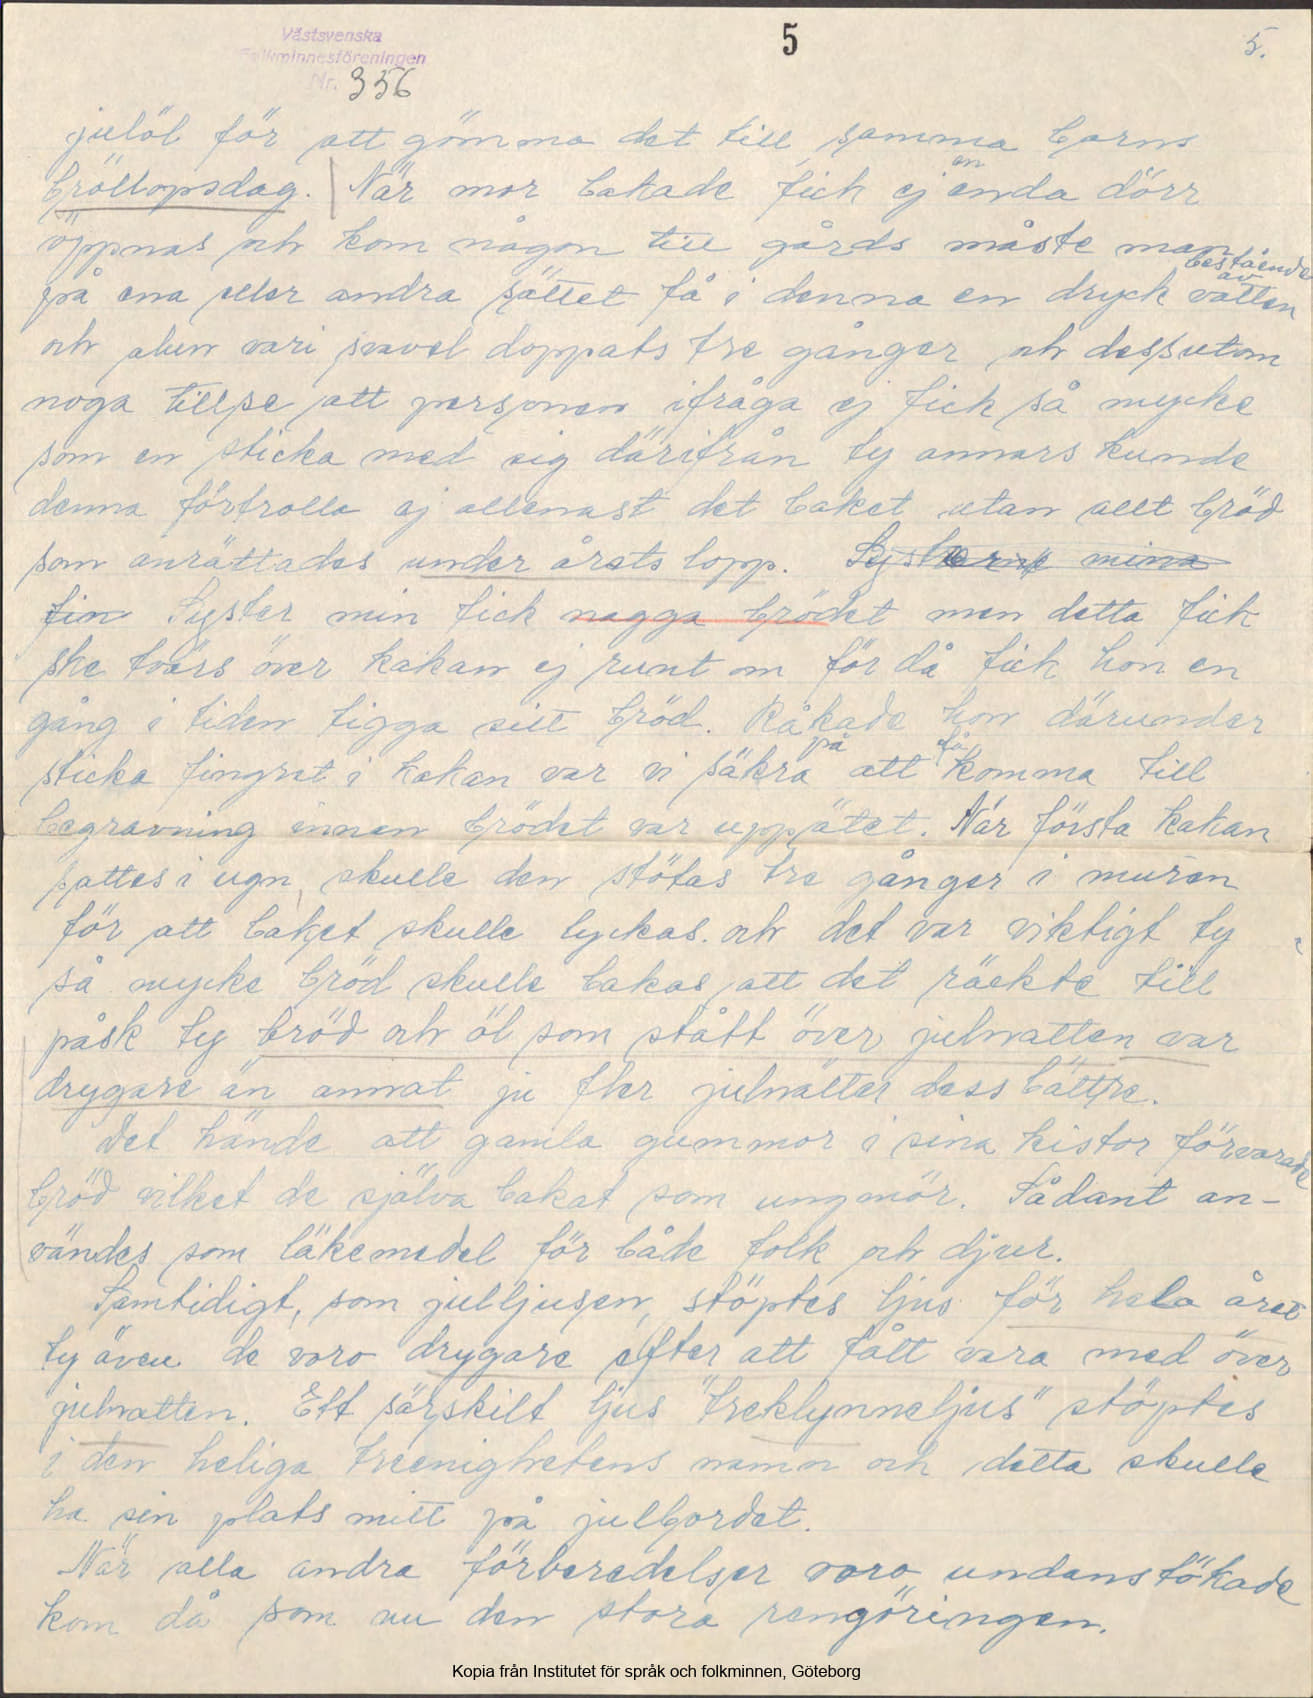 Västsvenska
Folkminnesföreningen
Nr. 356
5
5.
julöl för att gömma det till samma barns
bröllopsdag. När mor bakade fick ej en enda dörr
öppnas och kom någon till gårds måste man
på ena eller andra sättet få i denna en dryck bestående av vatten
och alun vari svavel doppats tre gånger och dessutom
noga tillse att personen ifråga ej fick så mycke
som en sticka med sig därifrån ty annars kunde
denna förtrolla ej allenast det baket utan allt bröd
som anrättades under årets lopp. Systrarna mina
fin Syster min fick nagga brödet men detta fick
ske tvärs över kakan ej runt om för då fick hon en
gång i tiden tigga sitt bröd. Råkade hon därunder
sticka fingret i kakan var vi säkra på att få komma till
begravning innan brödet var uppätet. När första kakan
sattes i ugn, skulle den stötas tre gånger i muren
för att baket skulle lyckas. och det var viktigt ty
så mycke bröd skulle bakas att det räckte till
påsk ty bröd och öl som stått över julnatten var
drygare än annat ju fler julnätter dess bättre.
Det hände att gamla gummor i sina kistor förvarade
bröd vilket de själva bakat som ungmör. Sådant an-
vändes som läkemedel för både folk och djur.
Samtidigt, som julljusen, stöptes ljus för hela året
ty även de voro drygare efter att fått vara med över
julnatten. Ett särskilt ljus "treklynneljus" stöptes
i den heliga treenighetens namn och detta skulle
ha sin plats mitt på julbordet.
När alla andra förberedelser voro undanstökade
kom då som nu den stora rengöringen.
Kopia från Institutet för språk och folkminnen, Göteborg